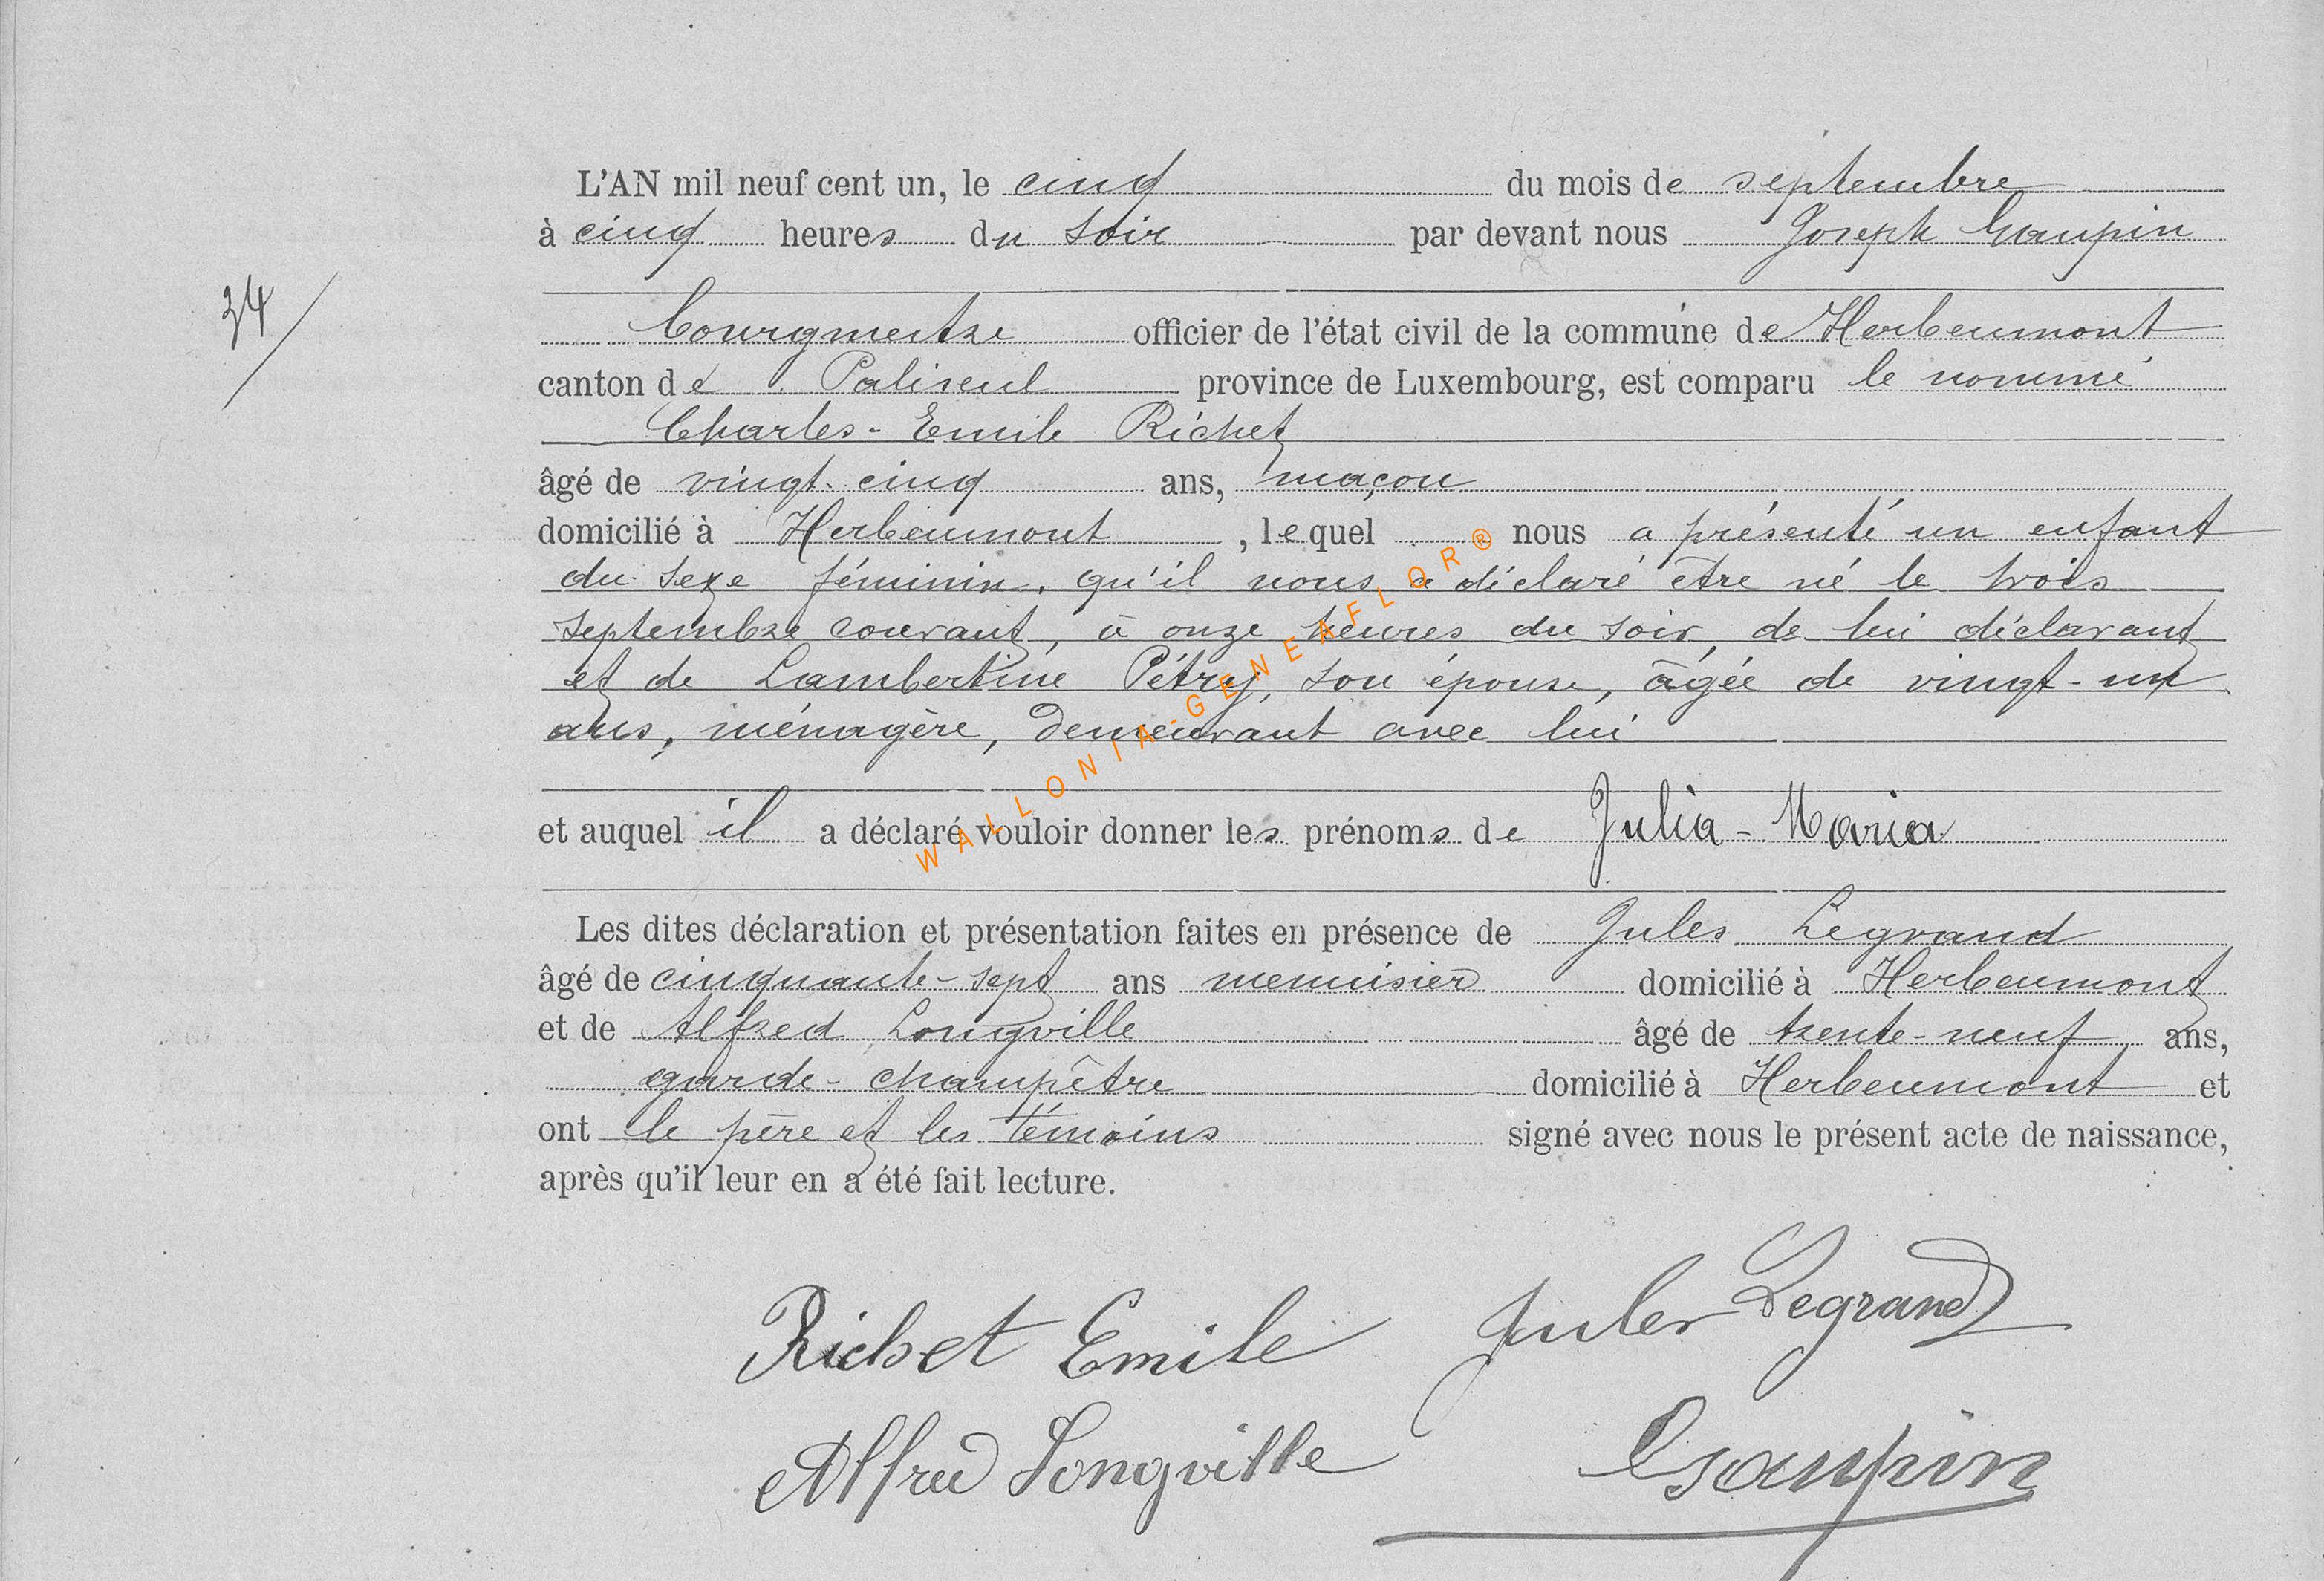 L'AN mil neuf cent un, le cinq du mois de septembre
à cinq heures du soir par devant nous Joseph Gaupin
34
bourgmestre officier de l'état civil de la commune de Herbeumont
canton de Paliseul province de Luxembourg, est comparu le nommé
Charles-Emile Richet
âgé de vingt-cinq ans, maçon
domicilié à Herbeumont, lequel nous a présenté un enfant
du sexe féminin, qu'il nous a déclaré être né le trois
septembre courant, à onze heures du soir, de lui déclarant
et de Lambertine Pétry, son épouse, âgée de vingt-un
ans, ménagère, demeurant avec lui
et auquel il a déclaré vouloir donner les prénoms de Julia-Maria
WALLONIA-GENEAFLOR®
Les dites déclaration et présentation faites en présence de Jules Legrand
âgé de cinquante-sept ans menuisier domicilié à Herbeumont
et de Alfred Longville âgé de trente-neuf ans,
garde-champêtre domicilié à Herbeumont et
ont le père et les témoins signé avec nous le présent acte de naissance,
après qu'il leur en a été fait lecture.
Richet Emile Jules Legrand
Alfred Longville Gaupin